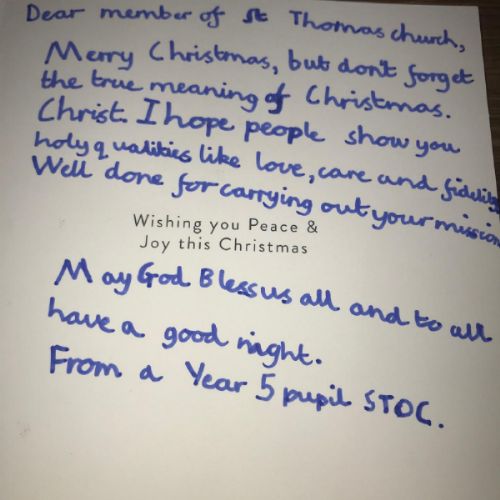 Dear member of St Thomas church,
Merry Christmas, but don't forget
the true meaning of Christmas.
Christ. I hope people show you
holy qualities like love, care and fidelity
Well done for carrying out your mission
Wishing you Peace &
Joy this Christmas
May God Bless us all and to all
have a good night.
From a Year 5 pupil STOC.